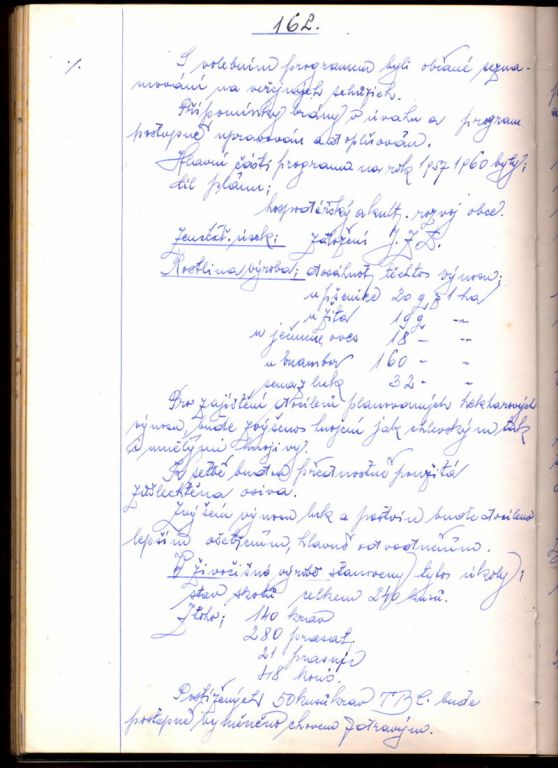 162.
·/.
S volebním programem byli občané sezna-
mováni na veřejných schůzích.
Připomínky brány v úvahu a program
postupně upravován a doplňován.
Hlavní části programu na rok 1957 1960 byty;
cíl plánu;
hospodářský a kult. rozvoj obce.
Zeměděl. úsek: založení J.Z.D.
Rostlina výroba; dosáhnot těchtos výnosu;
u pšenice 20 q z 1 ha
u žita 19 q -"-
u ječmene, oves 18 - -"-
u brambor 160 - -
sena z luk 32 - -
Pro zajištění docílení planovaných hekharových
výnosu, bude zvýšenos hnojení jak chlevským tak
i umělými hnojivy.
K setbě budou přednostně použitá
zušlechtěna osiva.
Zvýšení výnosu luk a pastvin bude docíleno
lepším ošetřením, hlavně odvodněním.
V živočišné výrobě stanoveny tytos úkoly;
stav skotu celkem 240 kusů.
Ztoho; 140 krav
280 prasat.
21 prasnic
48 koní.
Postižených 50 kusů krav TBC. bude
postupně vyměněno chovem zdravým.